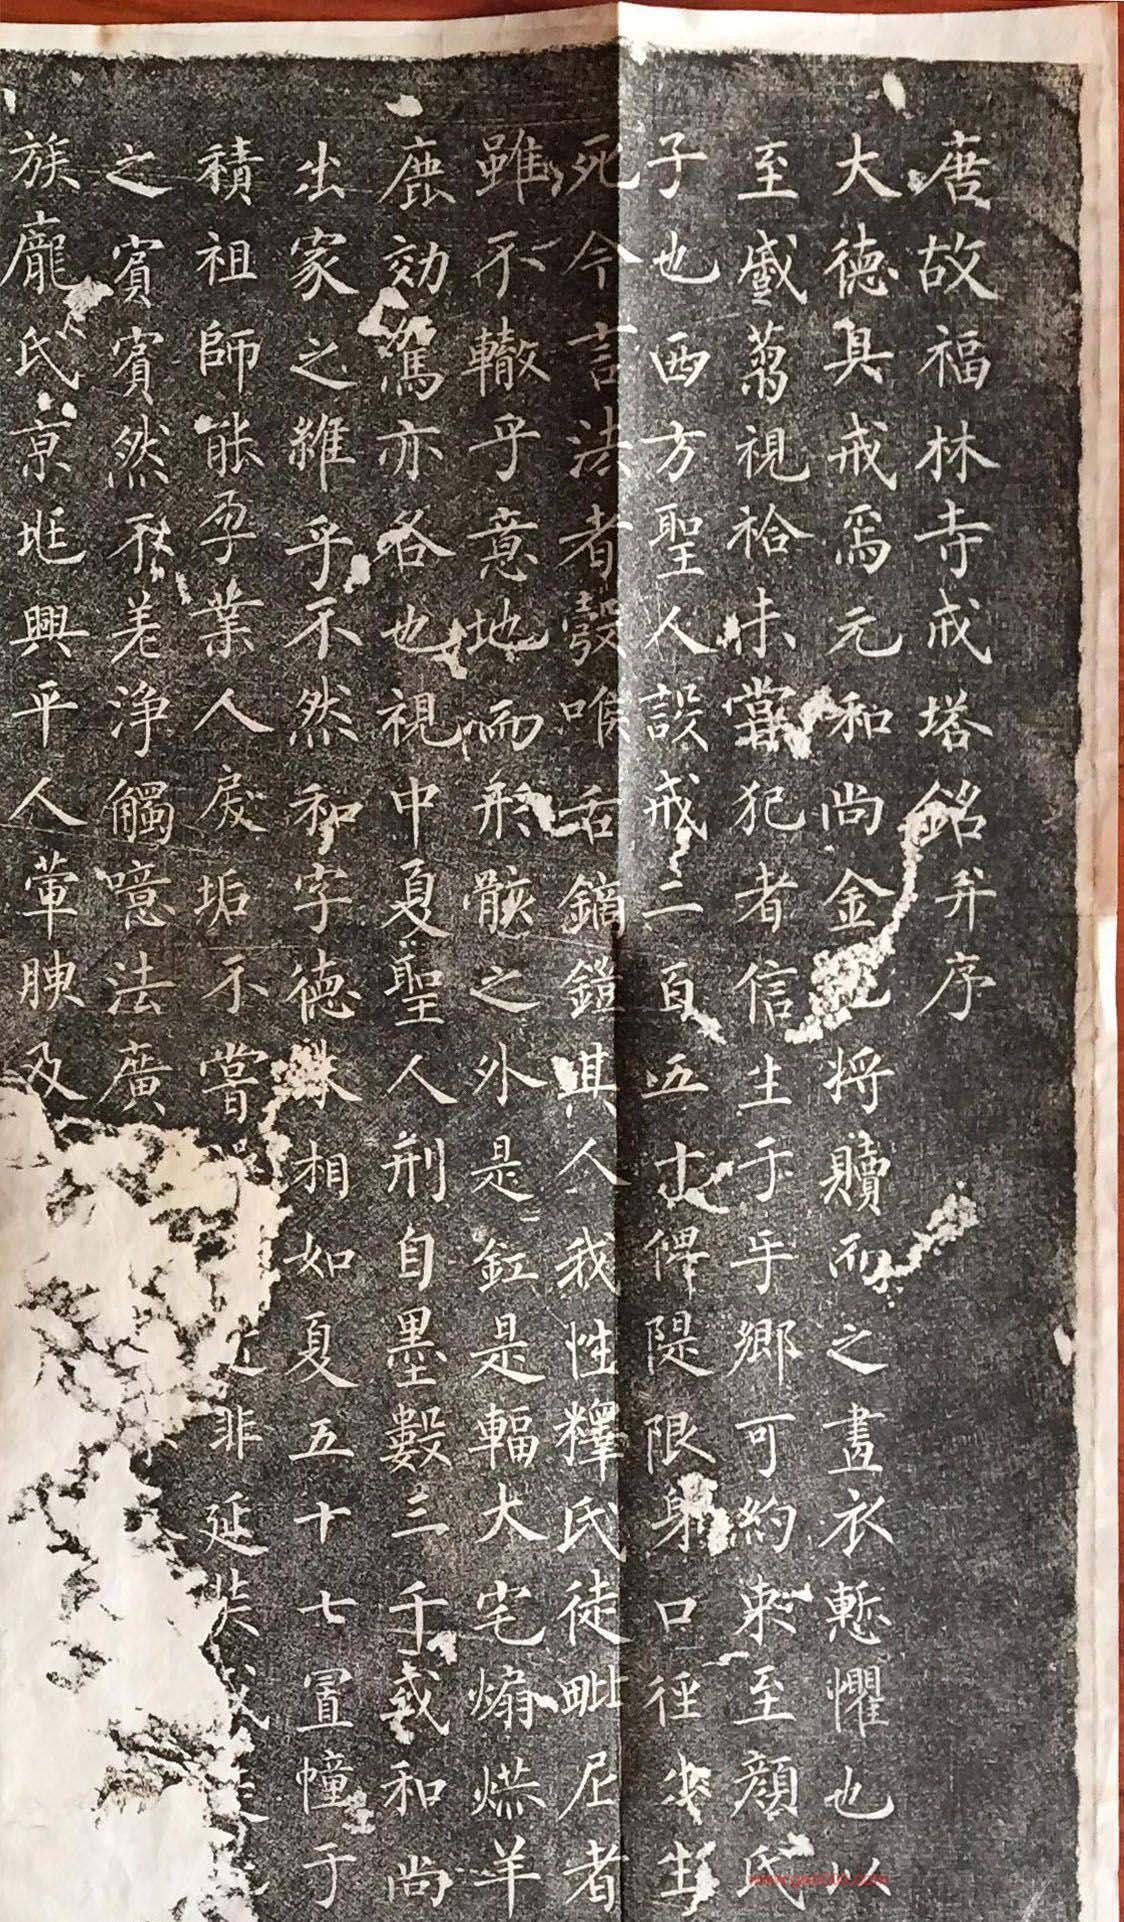 唐故福林寺戒塔銘并序
大德具戒焉元和尚金將贖而之畫衣慙懼也以
至感蒭視袷未甞犯者信生于乎鄉可約束至顏氏
子也西方聖人設戒二百五十俾隄限身口徑出生
死今言法者彀喉舌鏑鎧其人我性釋氏徒毗尼者
雖不轍乎意地而形骸之外是釭是輻大宅煽爇羊
鹿効駕亦各也視中夏聖人刑自墨數三千或和尚
出家之雄乎不然和字德朱相如夏五十七置幢于
積祖師能孕業人戾垢不嘗非延裝
之賓賓然不羌淨觸噫法廣
族龐氏京兆興平人葷腴及
www.gxcoro.com